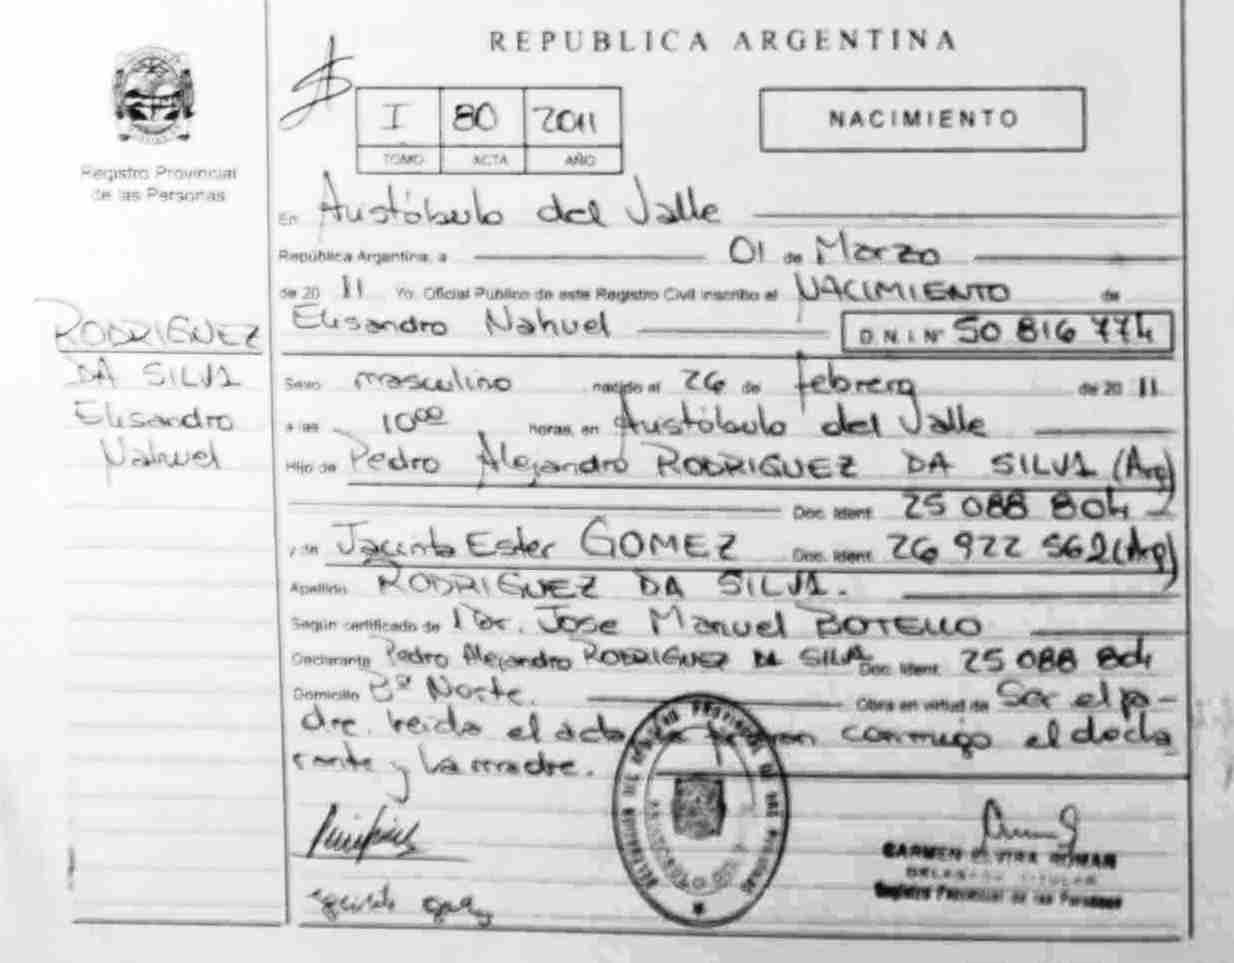 REPUBLICA ARGENTINA
Registro Provincial
de las Personas
I 80 2011
TOMO ACTA AÑO
NACIMIENTO
En Aristóbulo del Valle
República Argentina, a 01 de Marzo
de 20 11 Yo, Oficial Público de este Registro Civil inscribo el NACIMIENTO de
Elisandro Nahuel D.N.I Nº 50 816 774
RODRIGUEZ
DA SILVA
Elisandro
Nahuel
Sexo masculino nacido el 26 de febrero de 20 11
a las 10 00 horas, en Aristóbulo del Valle
Hijo de Pedro Alejandro RODRIGUEZ DA SILVA (Arg)
Doc. Ident. 25 088 804
y de Jacinta Ester GOMEZ Doc. Ident. 26 922 562 (Arg)
Apellido RODRIGUEZ DA SILVA.
Según certificado de Dr. Jose Manuel BOTELLO
Declarante Pedro Alejandro RODRIGUEZ DA SILVA Doc. Ident. 25 088 804
Domicilio Bº Norte. Obra en virtud de Ser el pa-
dre. leida el acta la firman conmigo el decla
rante y la madre.
CARMEN ELVIRA ROMAN
DELEGADA TITULAR
Registro Provincial de las Personas